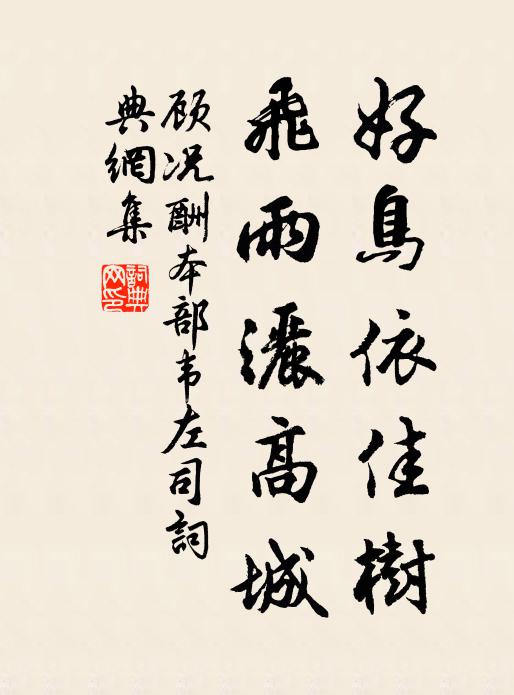 好鳥依佳樹
飛雨灑高城
顾况酬本部韦左司詞
典網集
詞典网印